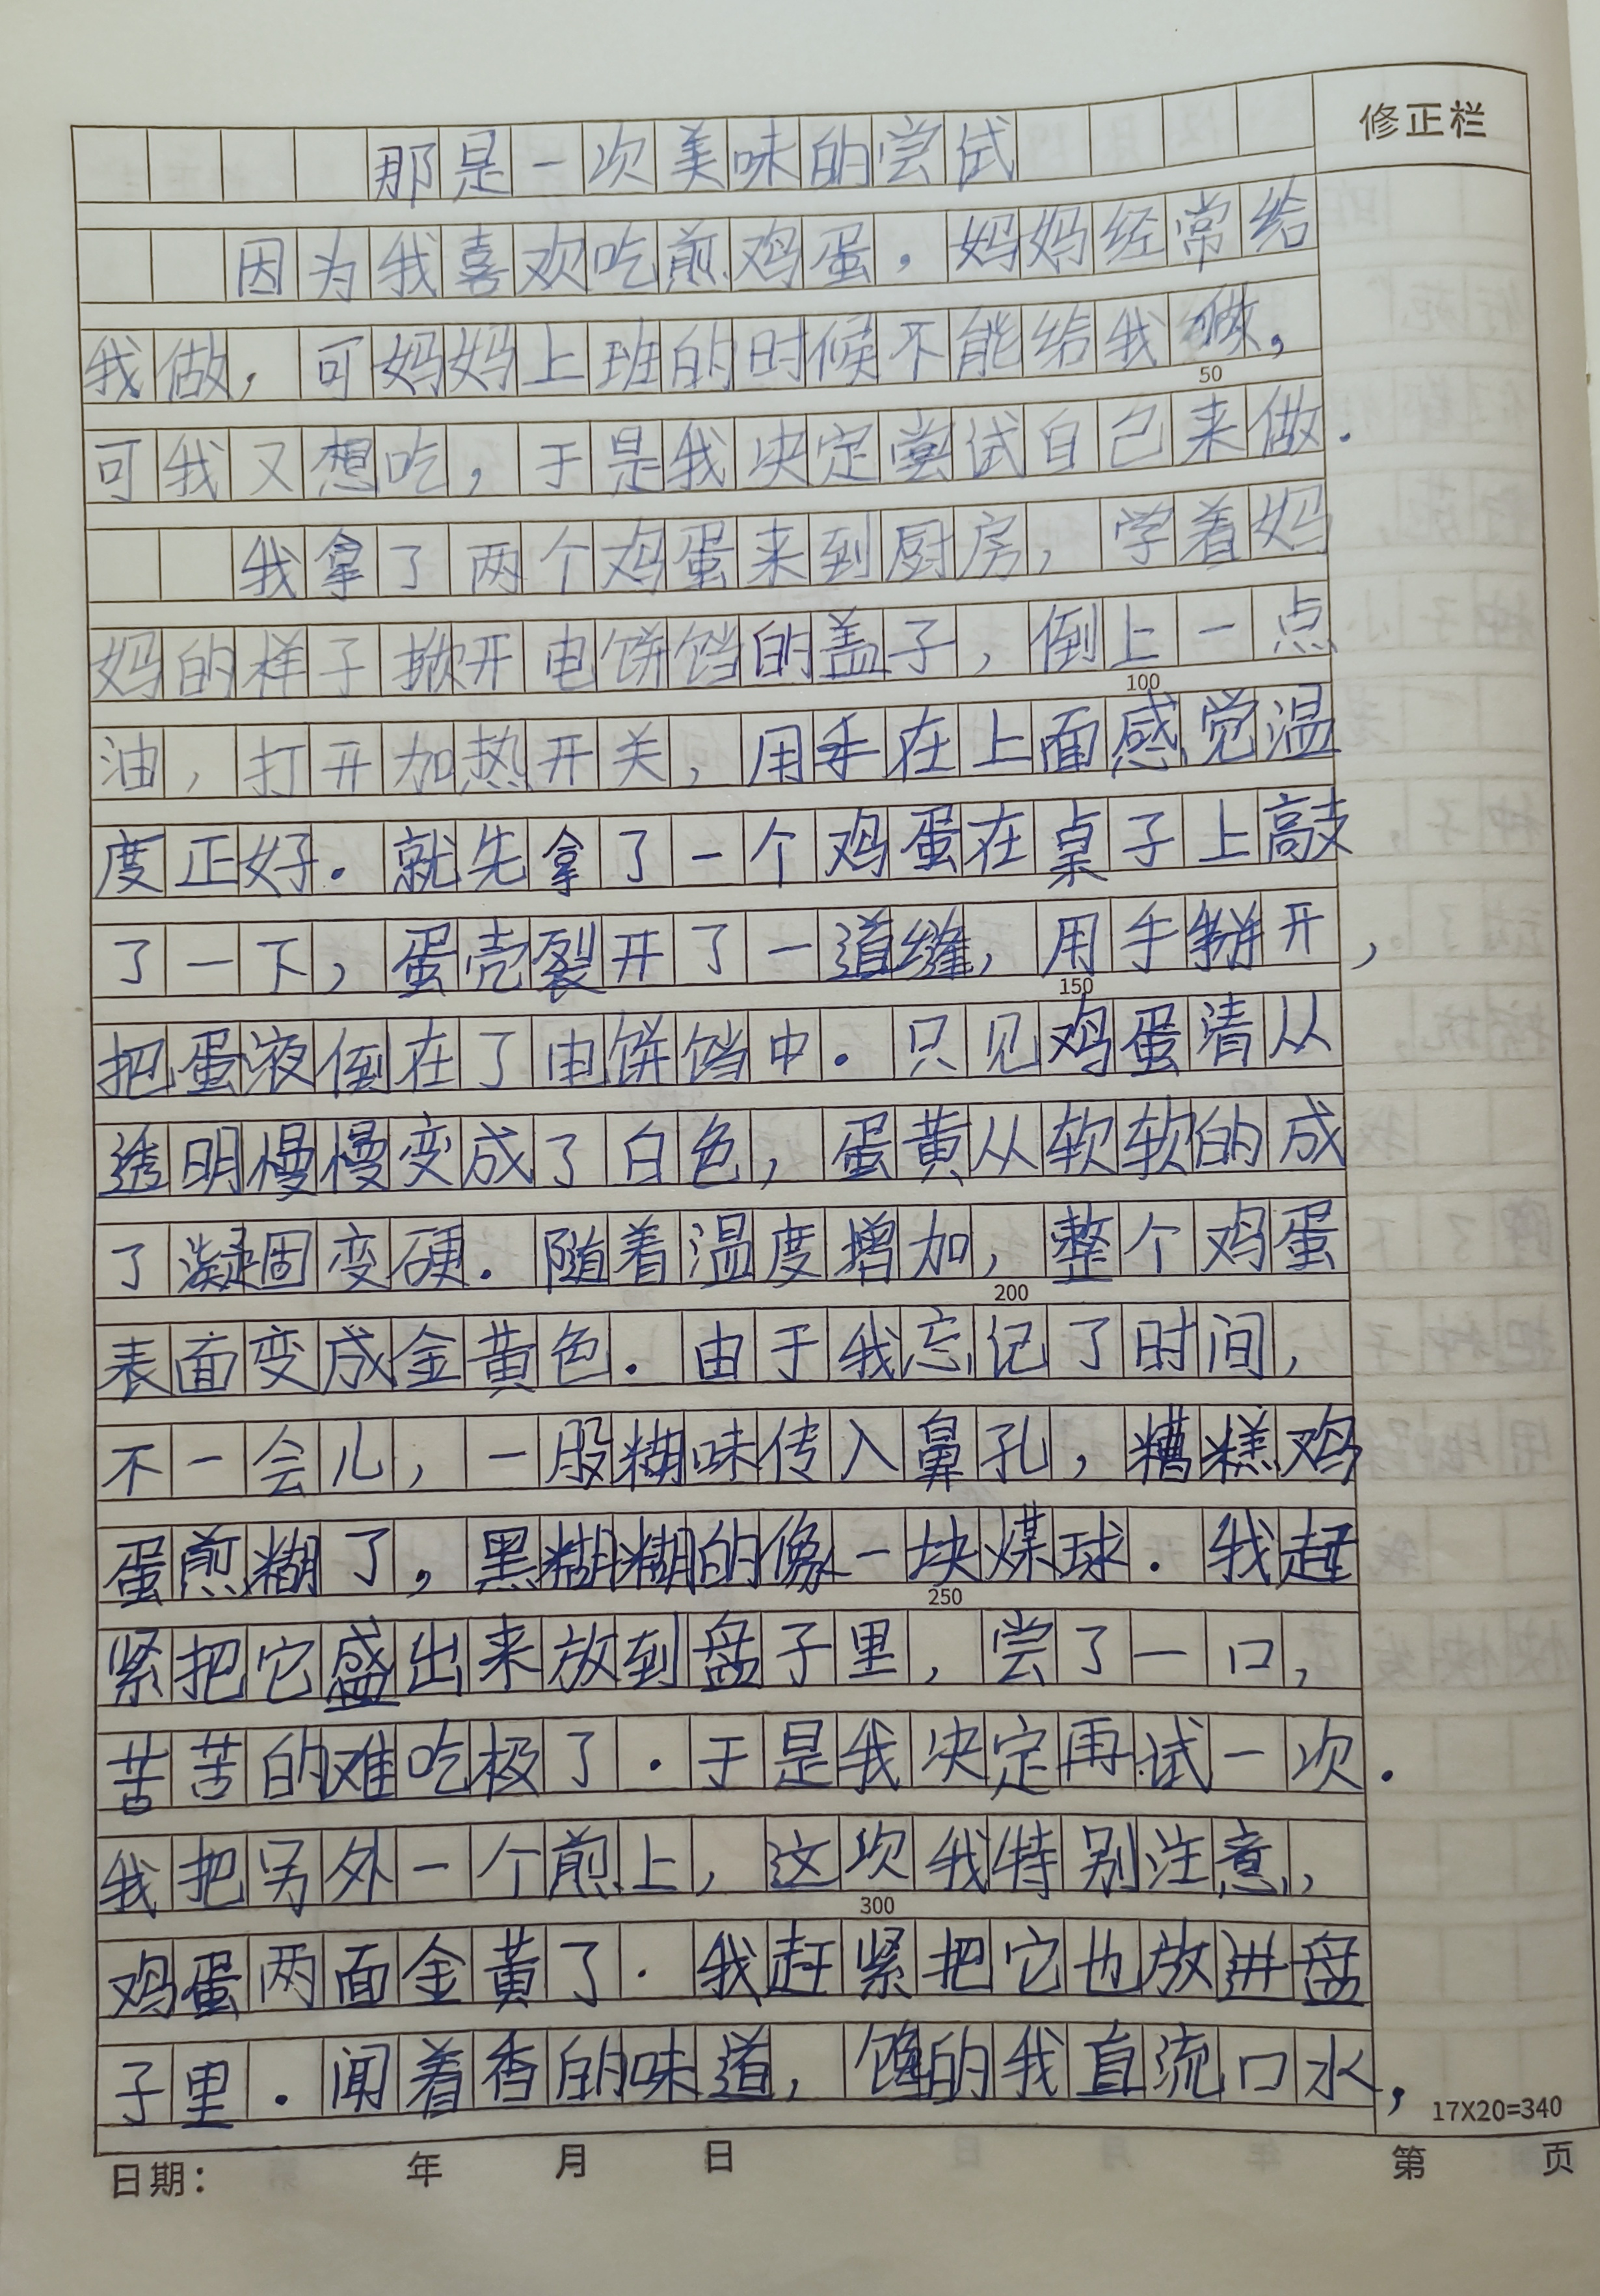 修正栏
那是一次美味的尝试
因为我喜欢吃煎鸡蛋，妈妈经常给
我做，可妈妈上班的时候不能给我做，
50
可我又想吃，于是我决定尝试自己来做．
我拿了两个鸡蛋来到厨房，学着妈
妈的样子掀开电饼铛的盖子，倒上一点
100
油，打开加热开关，用手在上面感觉温
度正好．就先拿了一个鸡蛋在桌子上敲
了一下，蛋壳裂开了一道缝，用手掰开，
150
把蛋液倒在了电饼铛中．只见鸡蛋清从
透明慢慢变成了白色，蛋黄从软软的成
了凝固变硬．随着温度增加，整个鸡蛋
200
表面变成金黄色．由于我忘记了时间，
不一会儿，一股糊味传入鼻孔，糟糕鸡
蛋煎糊了，黑糊糊的像一块煤球．我赶
250
紧把它盛出来放到盘子里，尝了一口，
苦苦的难吃极了．于是我决定再试一次．
我把另外一个煎上，这次我特别注意，
300
鸡蛋两面金黄了．我赶紧把它也放进盘
子里．闻着香的味道，馋的我直流口水，
17X20=340
日期： 年 月 日 第 页